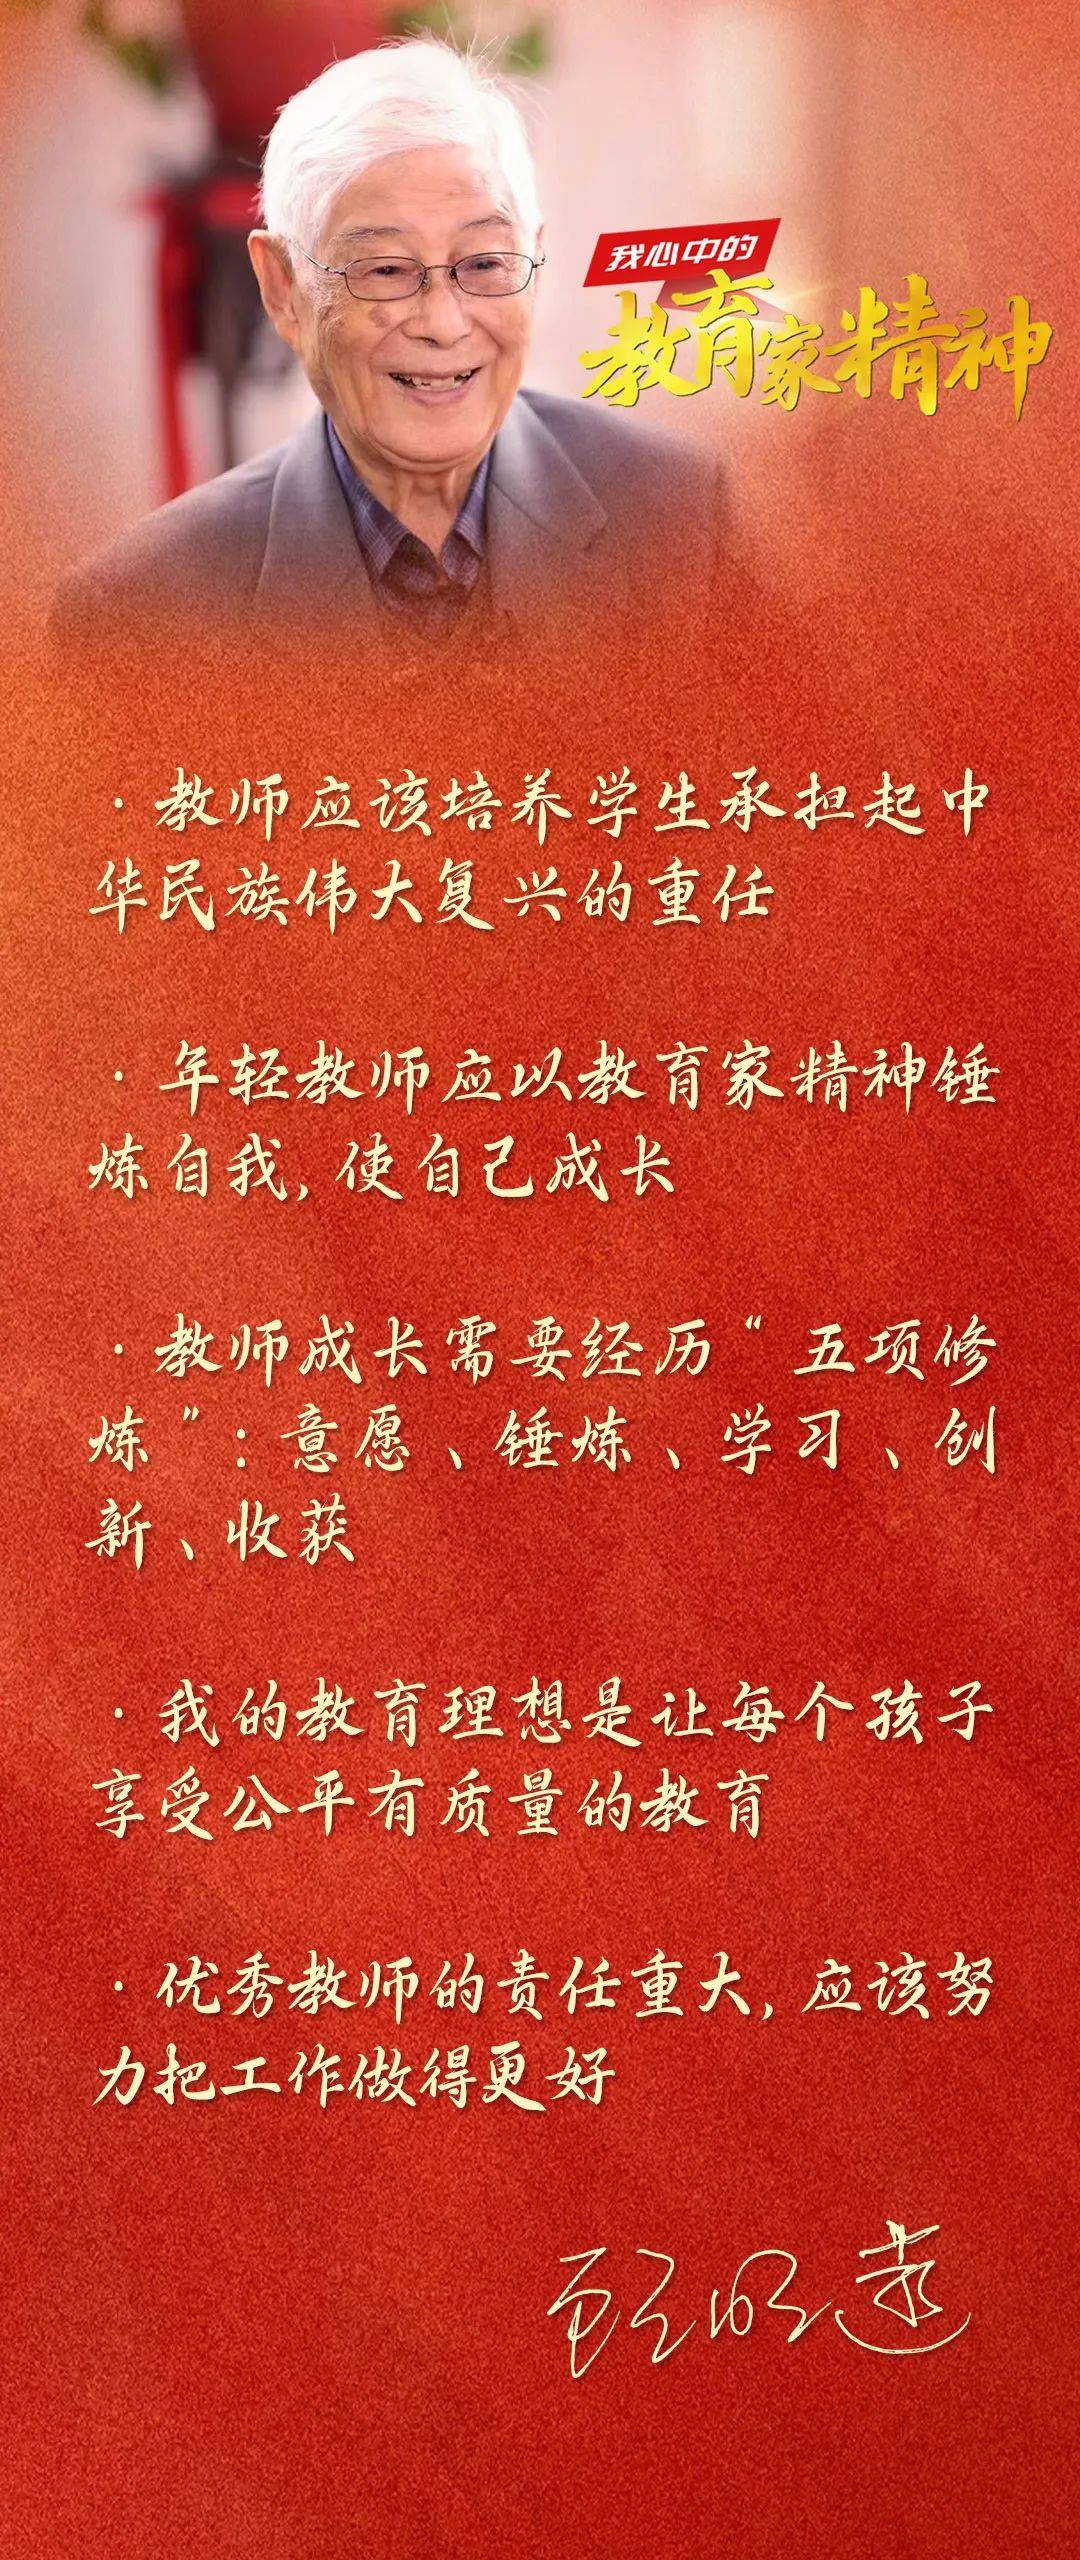 我心中的
教育家精神
·教师应该培养学生承担起中
华民族伟大复兴的重任
·年轻教师应以教育家精神锤
炼自我,使自己成长
·教师成长需要经历“五项修
炼”:意愿、锤炼、学习、创
新、收获
·我的教育理想是让每个孩子
享受公平有质量的教育
·优秀教师的责任重大,应该努
力把工作做得更好
顾明远